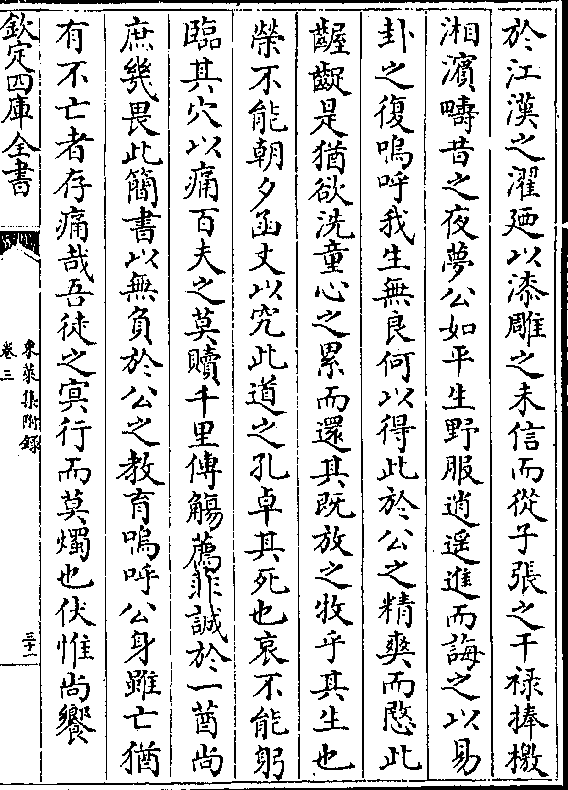 於江漢之濯廼以漆雕之未信而從子張之干禄捧檄
湘濱疇昔之夜夢公如平生野服逍遥進而誨之以易
卦之復嗚呼我生無良何以得此於公之精爽而愍此
齷齪是猶欲洗童心之累而還其既放之牧乎其生也
榮不能朝夕函丈以究此道之孔卓其死也哀不能躬
臨其穴以痛百夫之莫贖千里傳觴薦菲誠於一酋尚
庶幾畏此簡書以無負於公之教育嗚呼公身雖亡猶
有不亡者存痛哉吾徒之冥行而莫燭也伏惟尚饗
欽定四庫全書
東萊集附錄
卷三
三十一